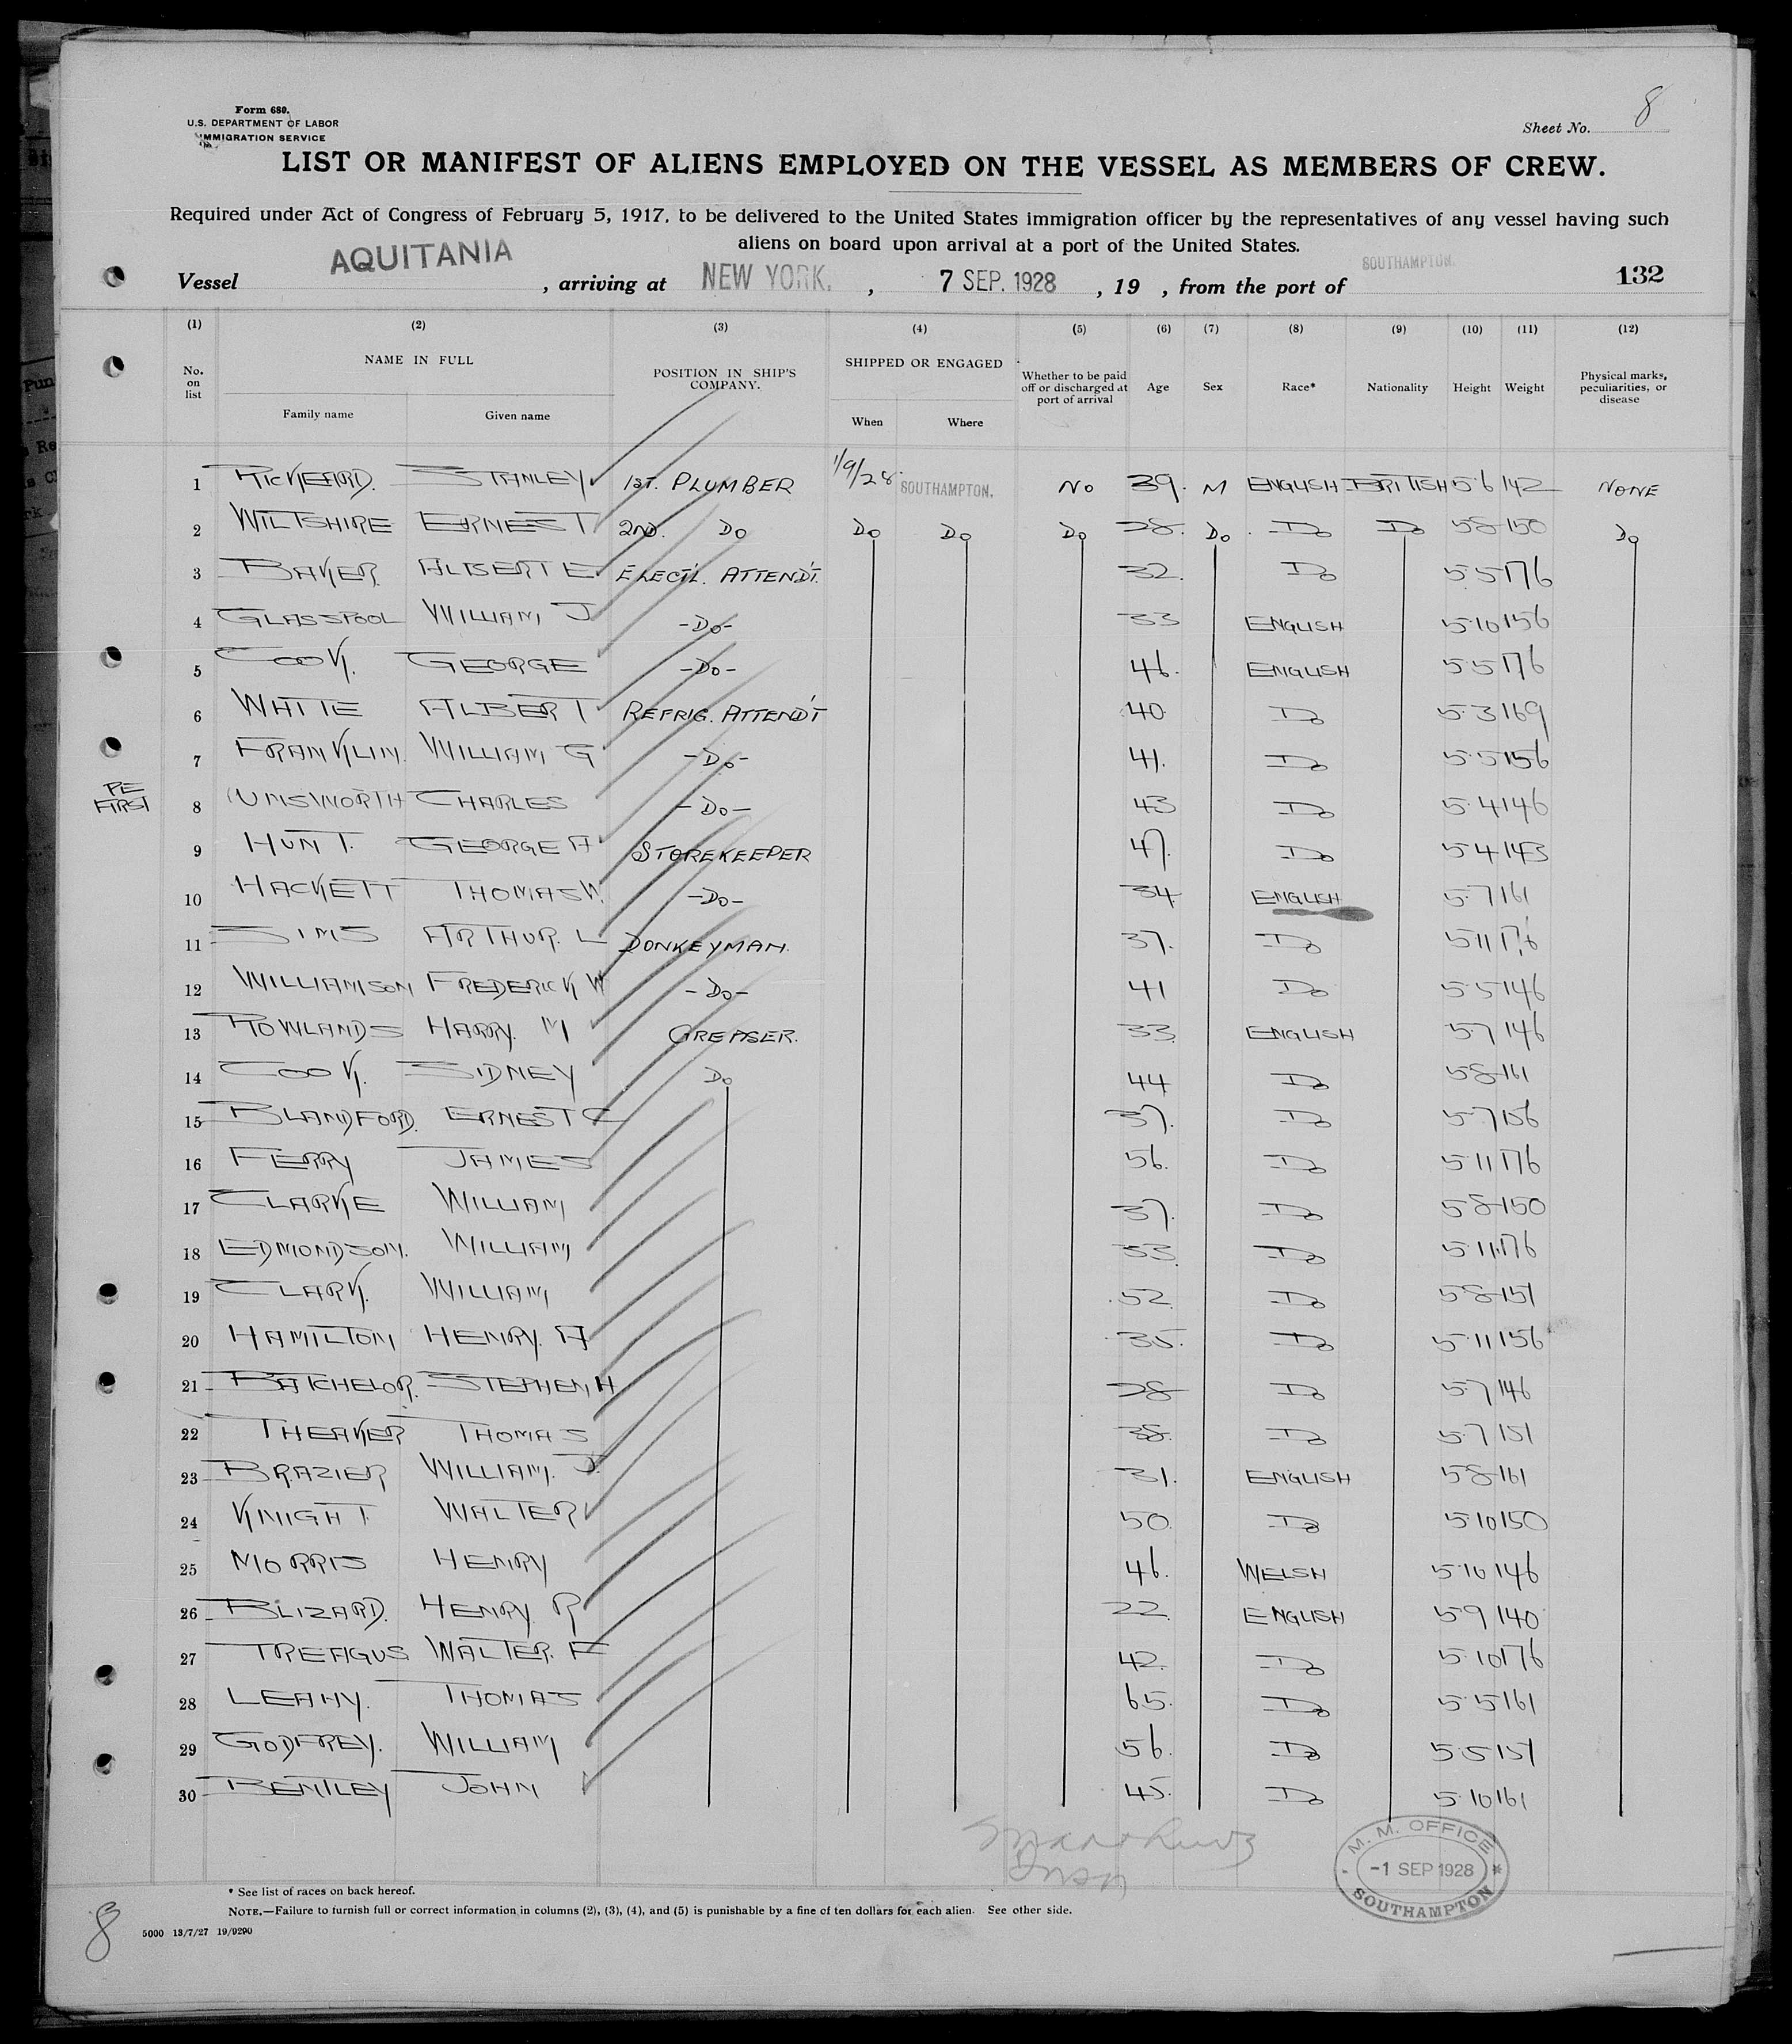 8
Form 680.
U.S. DEPARTMENT OF LABOR
IMMIGRATION SERVICE
Sheet No. 8
LIST OR MANIFEST OF ALIENS EMPLOYED ON THE VESSEL AS MEMBERS OF CREW.
Required under Act of Congress of February 5, 1917, to be delivered to the United States immigration officer by the representatives of any vessel having such
aliens on board upon arrival at a port of the United States.
Vessel AQUITANIA , arriving at NEW YORK. , 7 SEP. 1928 , 19 , from the port of SOUTHAMPTON. 132
(1) (2) (3) (4) (5) (6) (7) (8) (9) (10) (11) (12)
No. on list NAME IN FULL POSITION IN SHIP'S COMPANY. SHIPPED OR ENGAGED Whether to be paid off or discharged at port of arrival Age Sex Race* Nationality Height Weight Physical marks, peculiarities, or disease
Family name Given name When Where
1 RICKEFORD. STANLEY 1ST. PLUMBER 1/9/28 SOUTHAMPTON. NO 39. M ENGLISH BRITISH 5·6 142 NONE
2 WILTSHIRE ERNEST 2ND. DO DO DO DO 28. DO DO DO 5·8 150 DO
3 BAKER. ALBERT E. ELECT'L. ATTEND'T. 32. DO 5·5 176
4 GLASSPOOL WILLIAM J -DO- 33 ENGLISH 5·10 156
5 COOK. GEORGE -DO- 46. ENGLISH 5·5 176
6 WHITE ALBERT REFRIG. ATTEND'T 40 DO 5·3 169
7 FRANKLIN. WILLIAM G -DO- 41. DO 5·5 156
PE FIRST 8 UNSWORTH CHARLES -DO- 43 DO 5·4 146
9 HUNT. GEORGE A STOREKEEPER 47. DO 5·4 143
10 HACKETT THOMAS W. -DO- 34 ENGLISH 5·7 161
11 SIMS ARTHUR. L DONKEYMAN. 37. DO 5·11 176
12 WILLIAMSON FREDERICK W -DO- 41 DO 5·5 146
13 ROWLANDS HARRY. M GREASER. 33. ENGLISH 5·7 146
14 COOK. SIDNEY DO 44 DO 5·8 161
15 BLANDFORD. ERNEST C 37. DO 5·7 156
16 FERRY JAMES 56. DO 5·11 176
17 CLARKE WILLIAM 37. DO 5·8 150
18 EDMONDSON. WILLIAM 53. DO 5·11 176
19 CLARK. WILLIAM 52. DO 5·8 151
20 HAMILTON HENRY. A 35. DO 5·11 156
21 BATCHELOR. STEPHEN H 28 DO 5·7 146
22 THEAKER THOMAS 38. DO 5·7 151
23 BRAZIER WILLIAM. J. 31. ENGLISH 5·8 161
24 KNIGHT. WALTER 50. DO 5·10 150
25 MORRIS HENRY 46. WELSH 5·10 146
26 BLIZARD. HENRY. R 22. ENGLISH 5·9 140
27 TREAGUS WALTER. F 42. DO 5·10 176
28 LEAHY. THOMAS 65. DO 5·5 161
29 GODFREY. WILLIAM 56. DO 5·5 151
30 BENTLEY JOHN 45. DO 5·10 161
M. M. OFFICE
-1 SEP 1928
SOUTHAMPTON
* See list of races on back hereof.
NOTE.—Failure to furnish full or correct information in columns (2), (3), (4), and (5) is punishable by a fine of ten dollars for each alien. See other side.
8
5000 13/7/27 19/9290